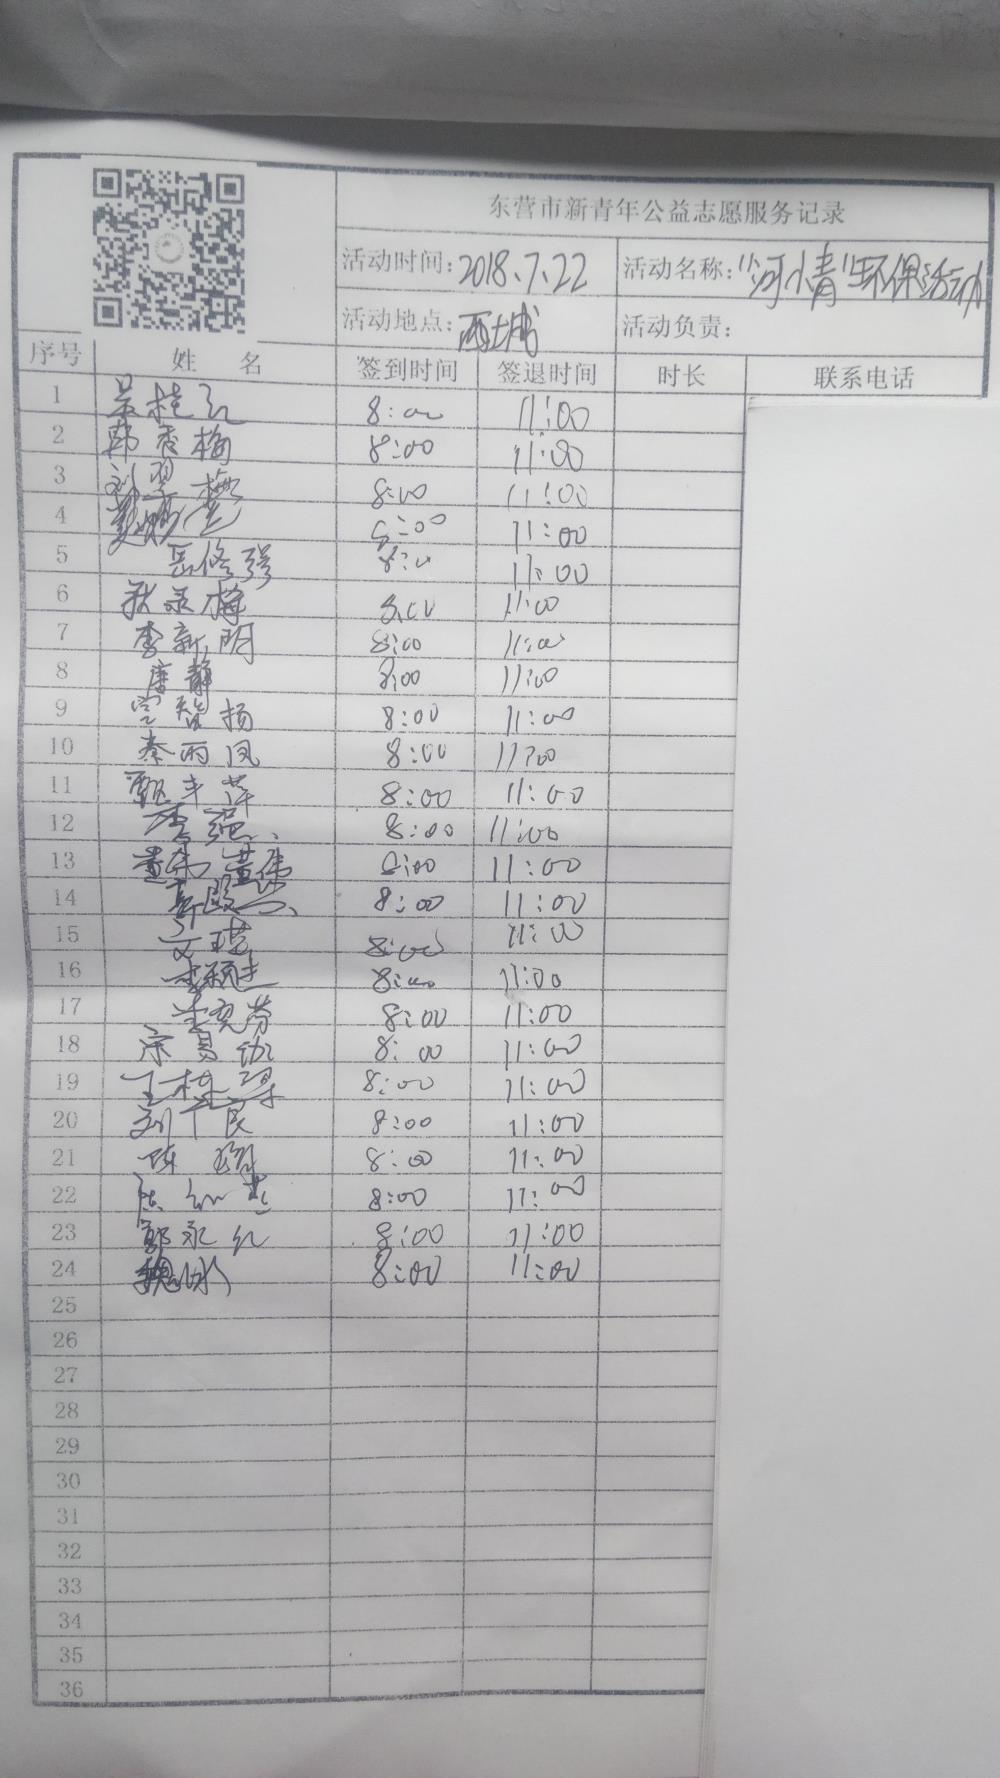 东营市新青年公益志愿服务记录
活动时间：2018、7、22 活动名称："河小青"环保活动
活动地点：西城 活动负责：
序号 姓 名 签到时间 签退时间 时长 联系电话
1 吴桂红 8:00 11:00
2 韩秀梅 8:00 11:00
3 8:00 11:00
4 8:00 11:00
5 岳修强 8:00 11:00
6 8:00 11:00
7 李新明 8:00 11:00
8 唐静 8:00 11:00
9 扬 8:00 11:00
10 秦雨凤 8:00 11:00
11 甄 萍 8:00 11:00
12 李 8:00 11:00
13 董伟 8:00 11:00
14 8:00 11:00
15 文 8:00 11:00
16 8:00 11:00
17 8:00 11:00
18 宗 8:00 11:00
19 王栋梁 8:00 11:00
20 刘 民 8:00 11:00
21 陈 8:00 11:00
22 8:00 11:00
23 郭永红 8:00 11:00
24 魏 8:00 11:00
25
26
27
28
29
30
31
32
33
34
35
36